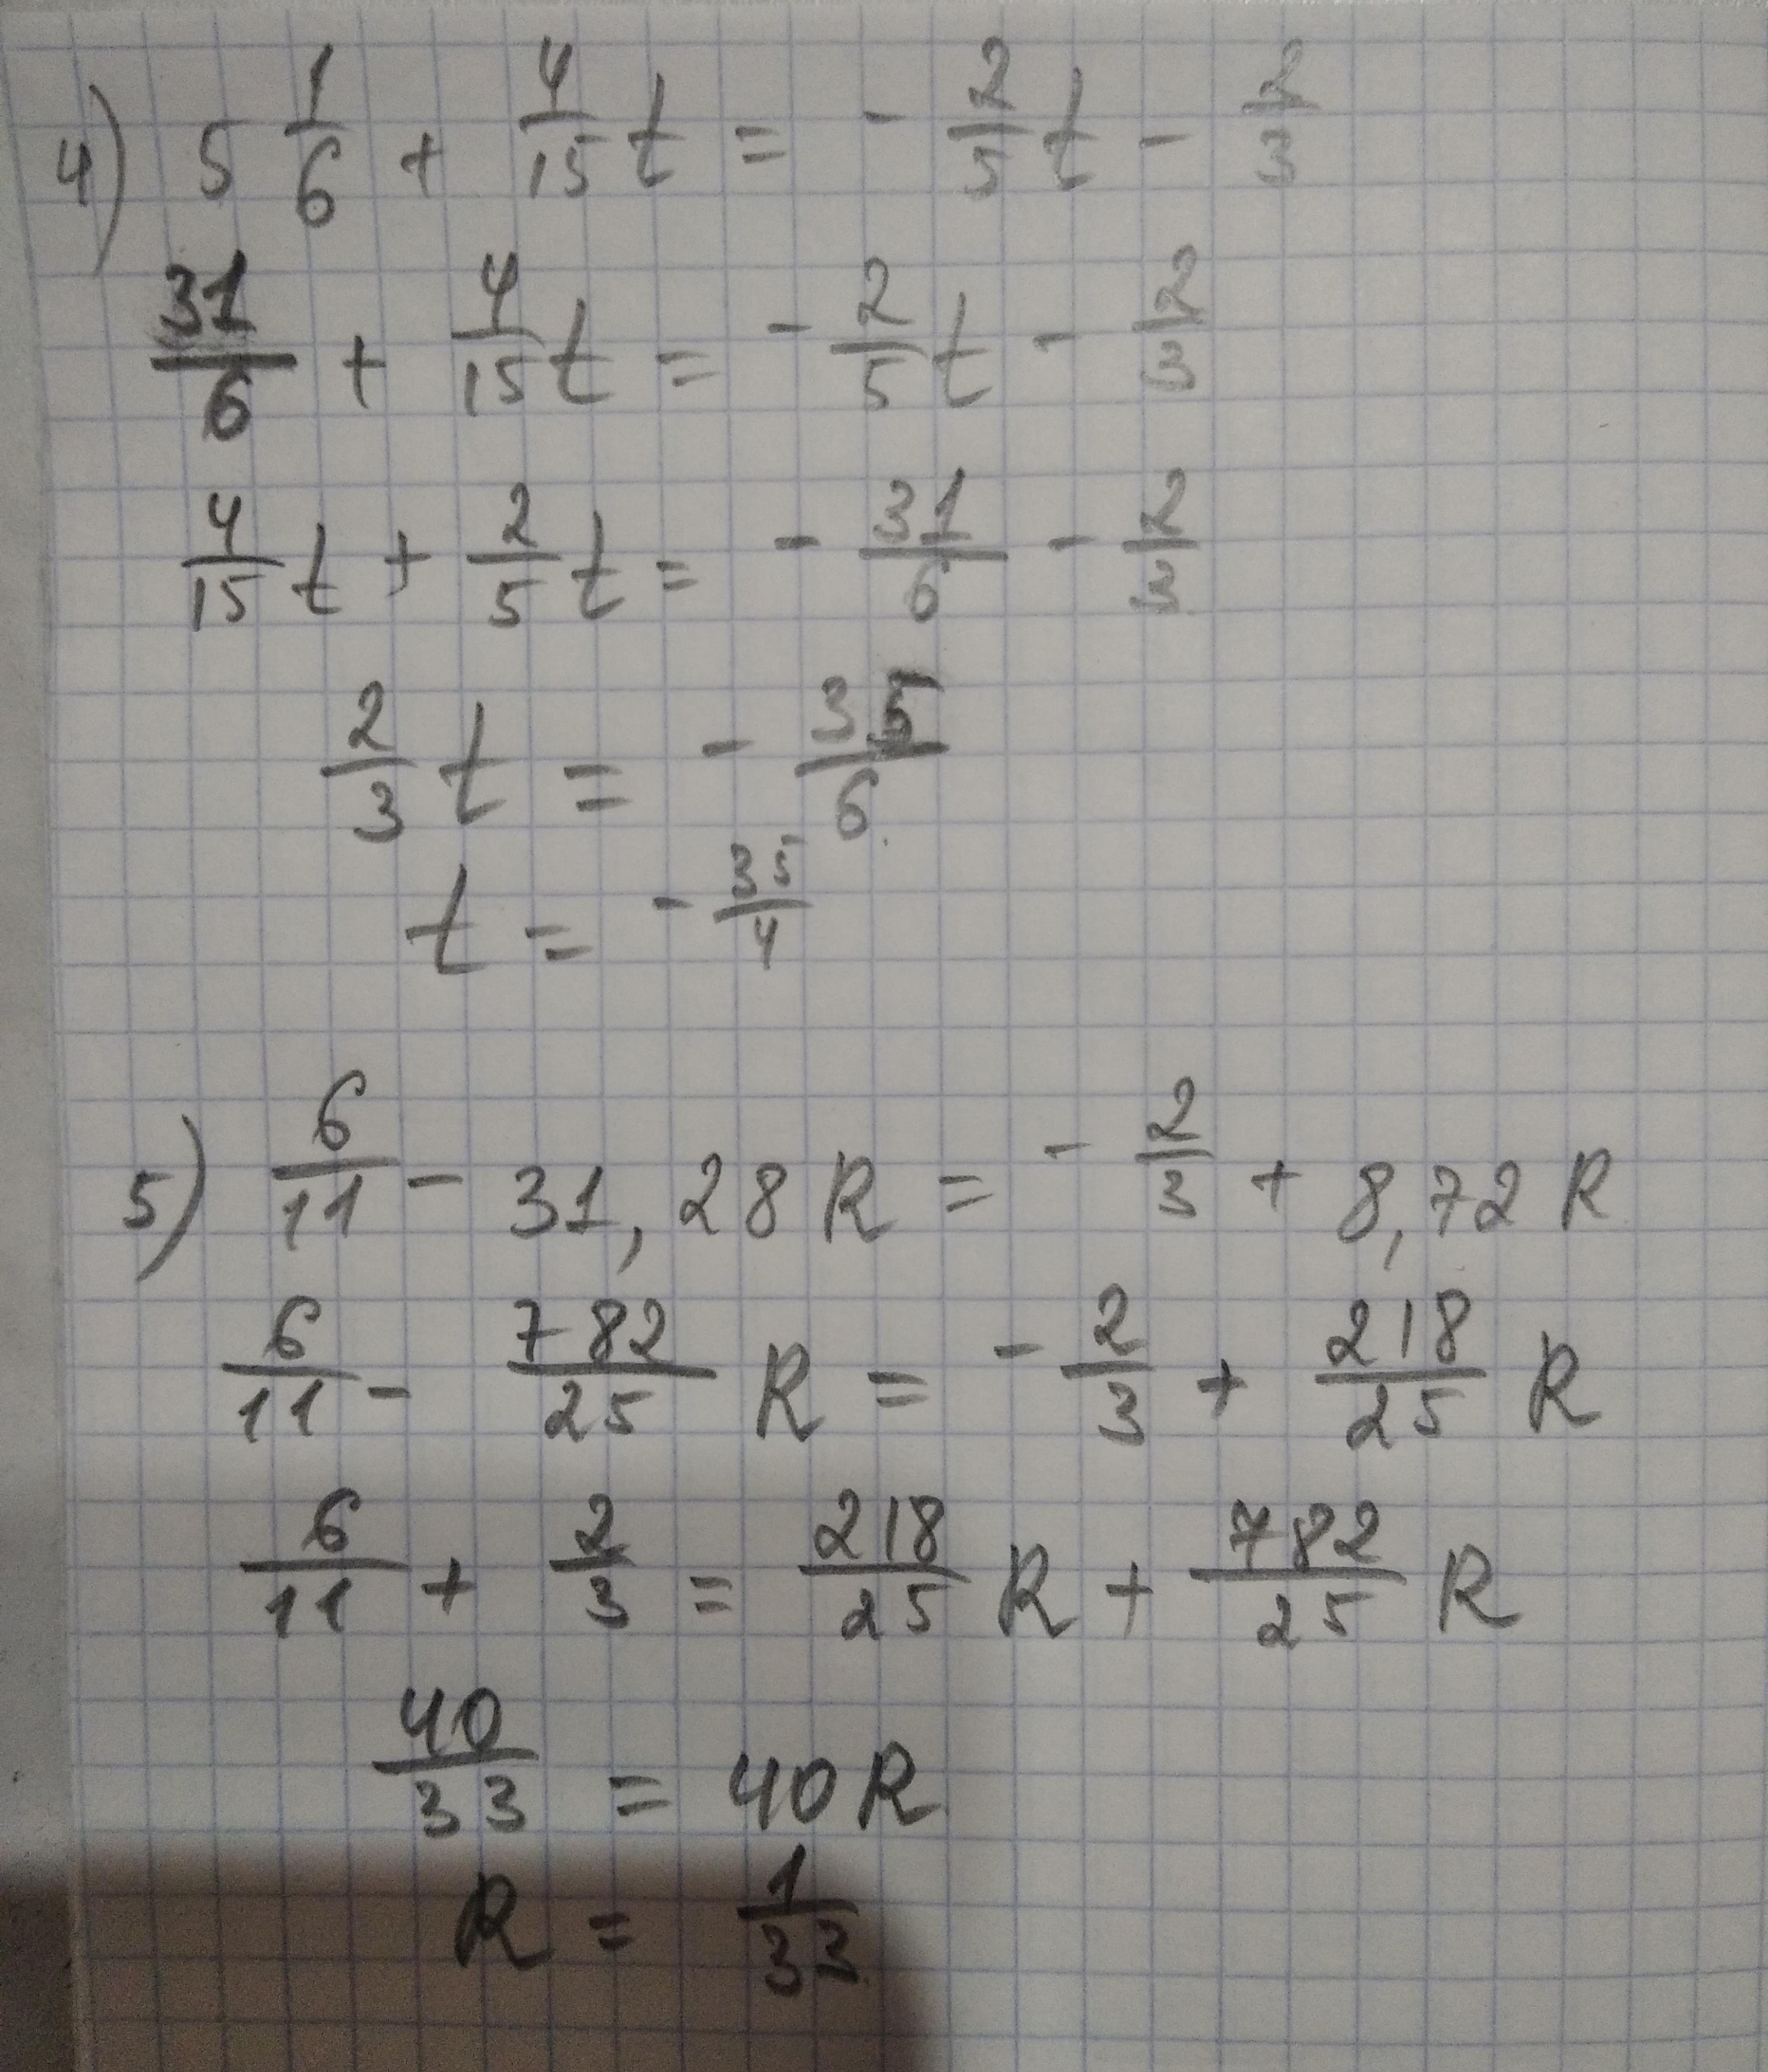 4) 5 1/6 + 4/15 t = - 2/5 t - 2/3
31/6 + 4/15 t = - 2/5 t - 2/3
4/15 t + 2/5 t = - 31/6 - 2/3
2/3 t = - 35/6
t = - 35/4
5) 6/11 - 31,28 R = - 2/3 + 8,72 R
6/11 - 782/25 R = - 2/3 + 218/25 R
6/11 + 2/3 = 218/25 R + 782/25 R
40/33 = 40 R
R = 1/33